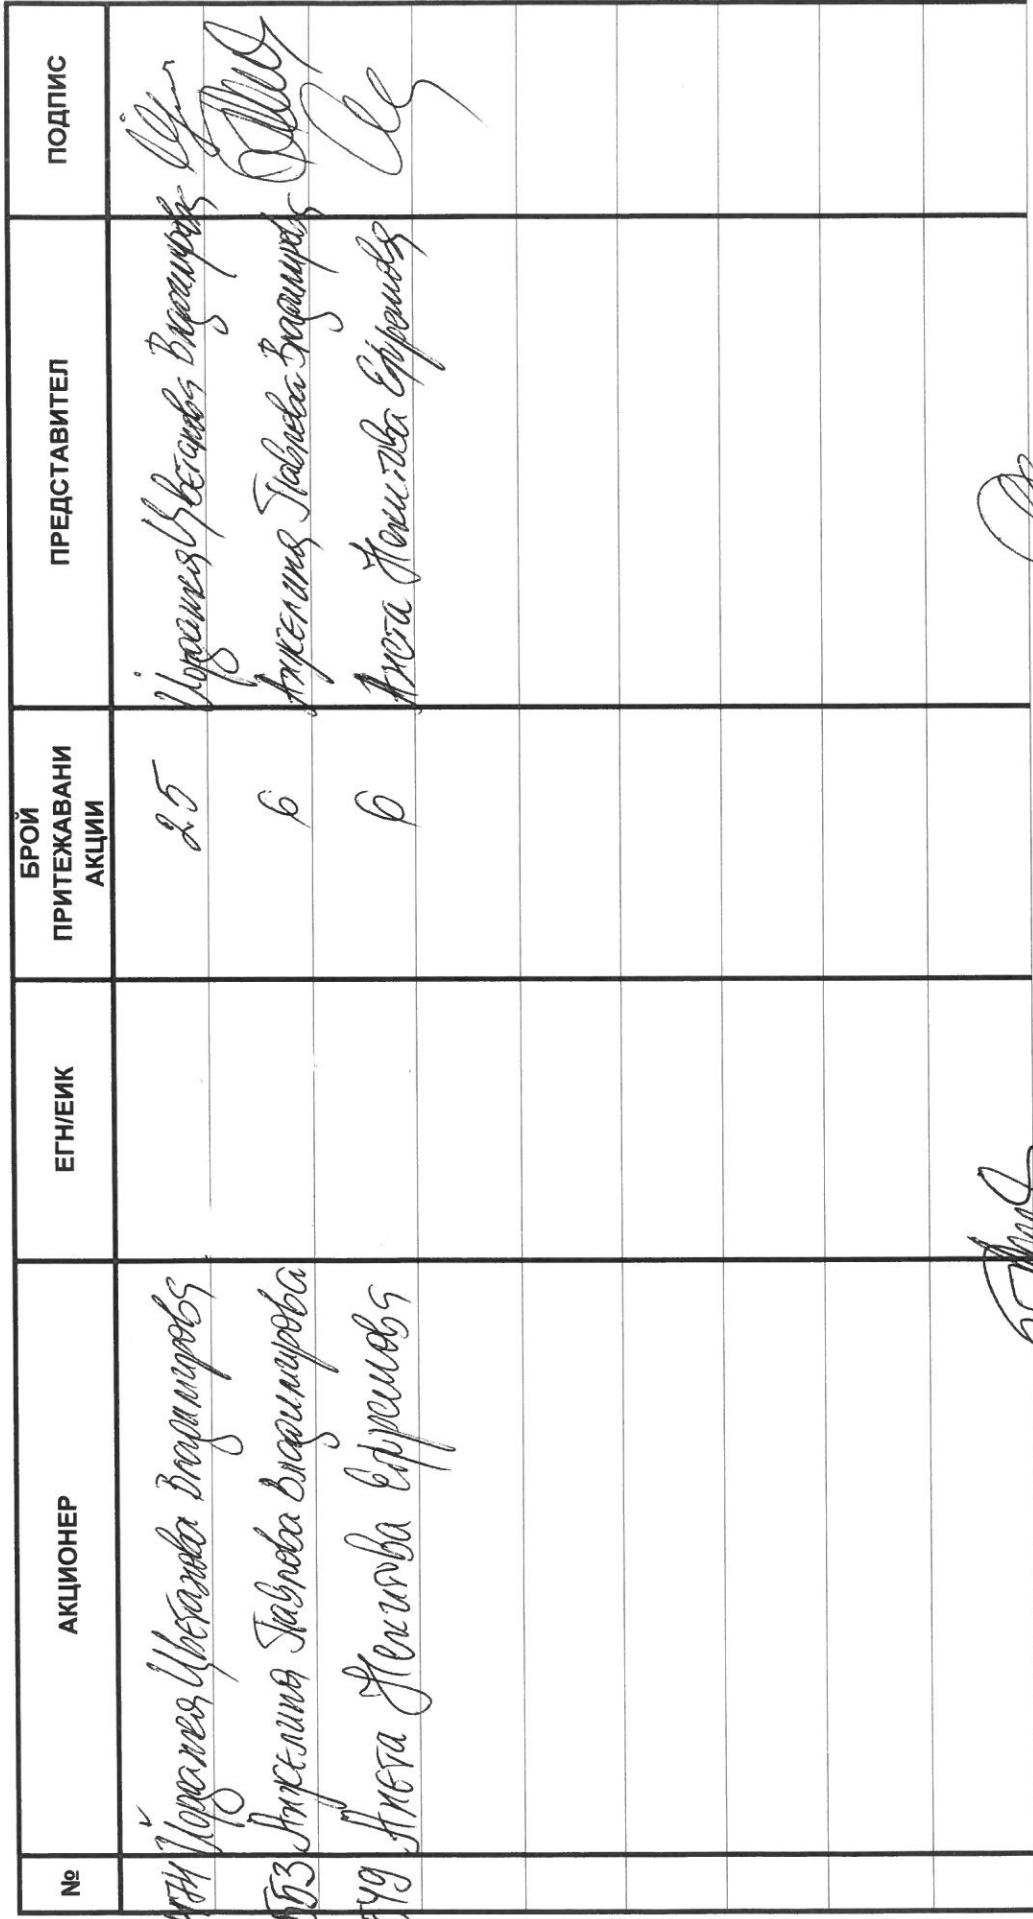 № АКЦИОНЕР ЕГН/ЕИК БРОЙ ПРИТЕЖАВАНИ АКЦИИ ПРЕДСТАВИТЕЛ ПОДПИС
Йорданка Цветанова Владимирова 25 Йорданка Цветанова Владимирова
553 Анжелина Павлова Владимирова 6 Анжелина Павлова Владимирова
549 Анета Некитова Ефремова 6 Анета Некитова Ефремова